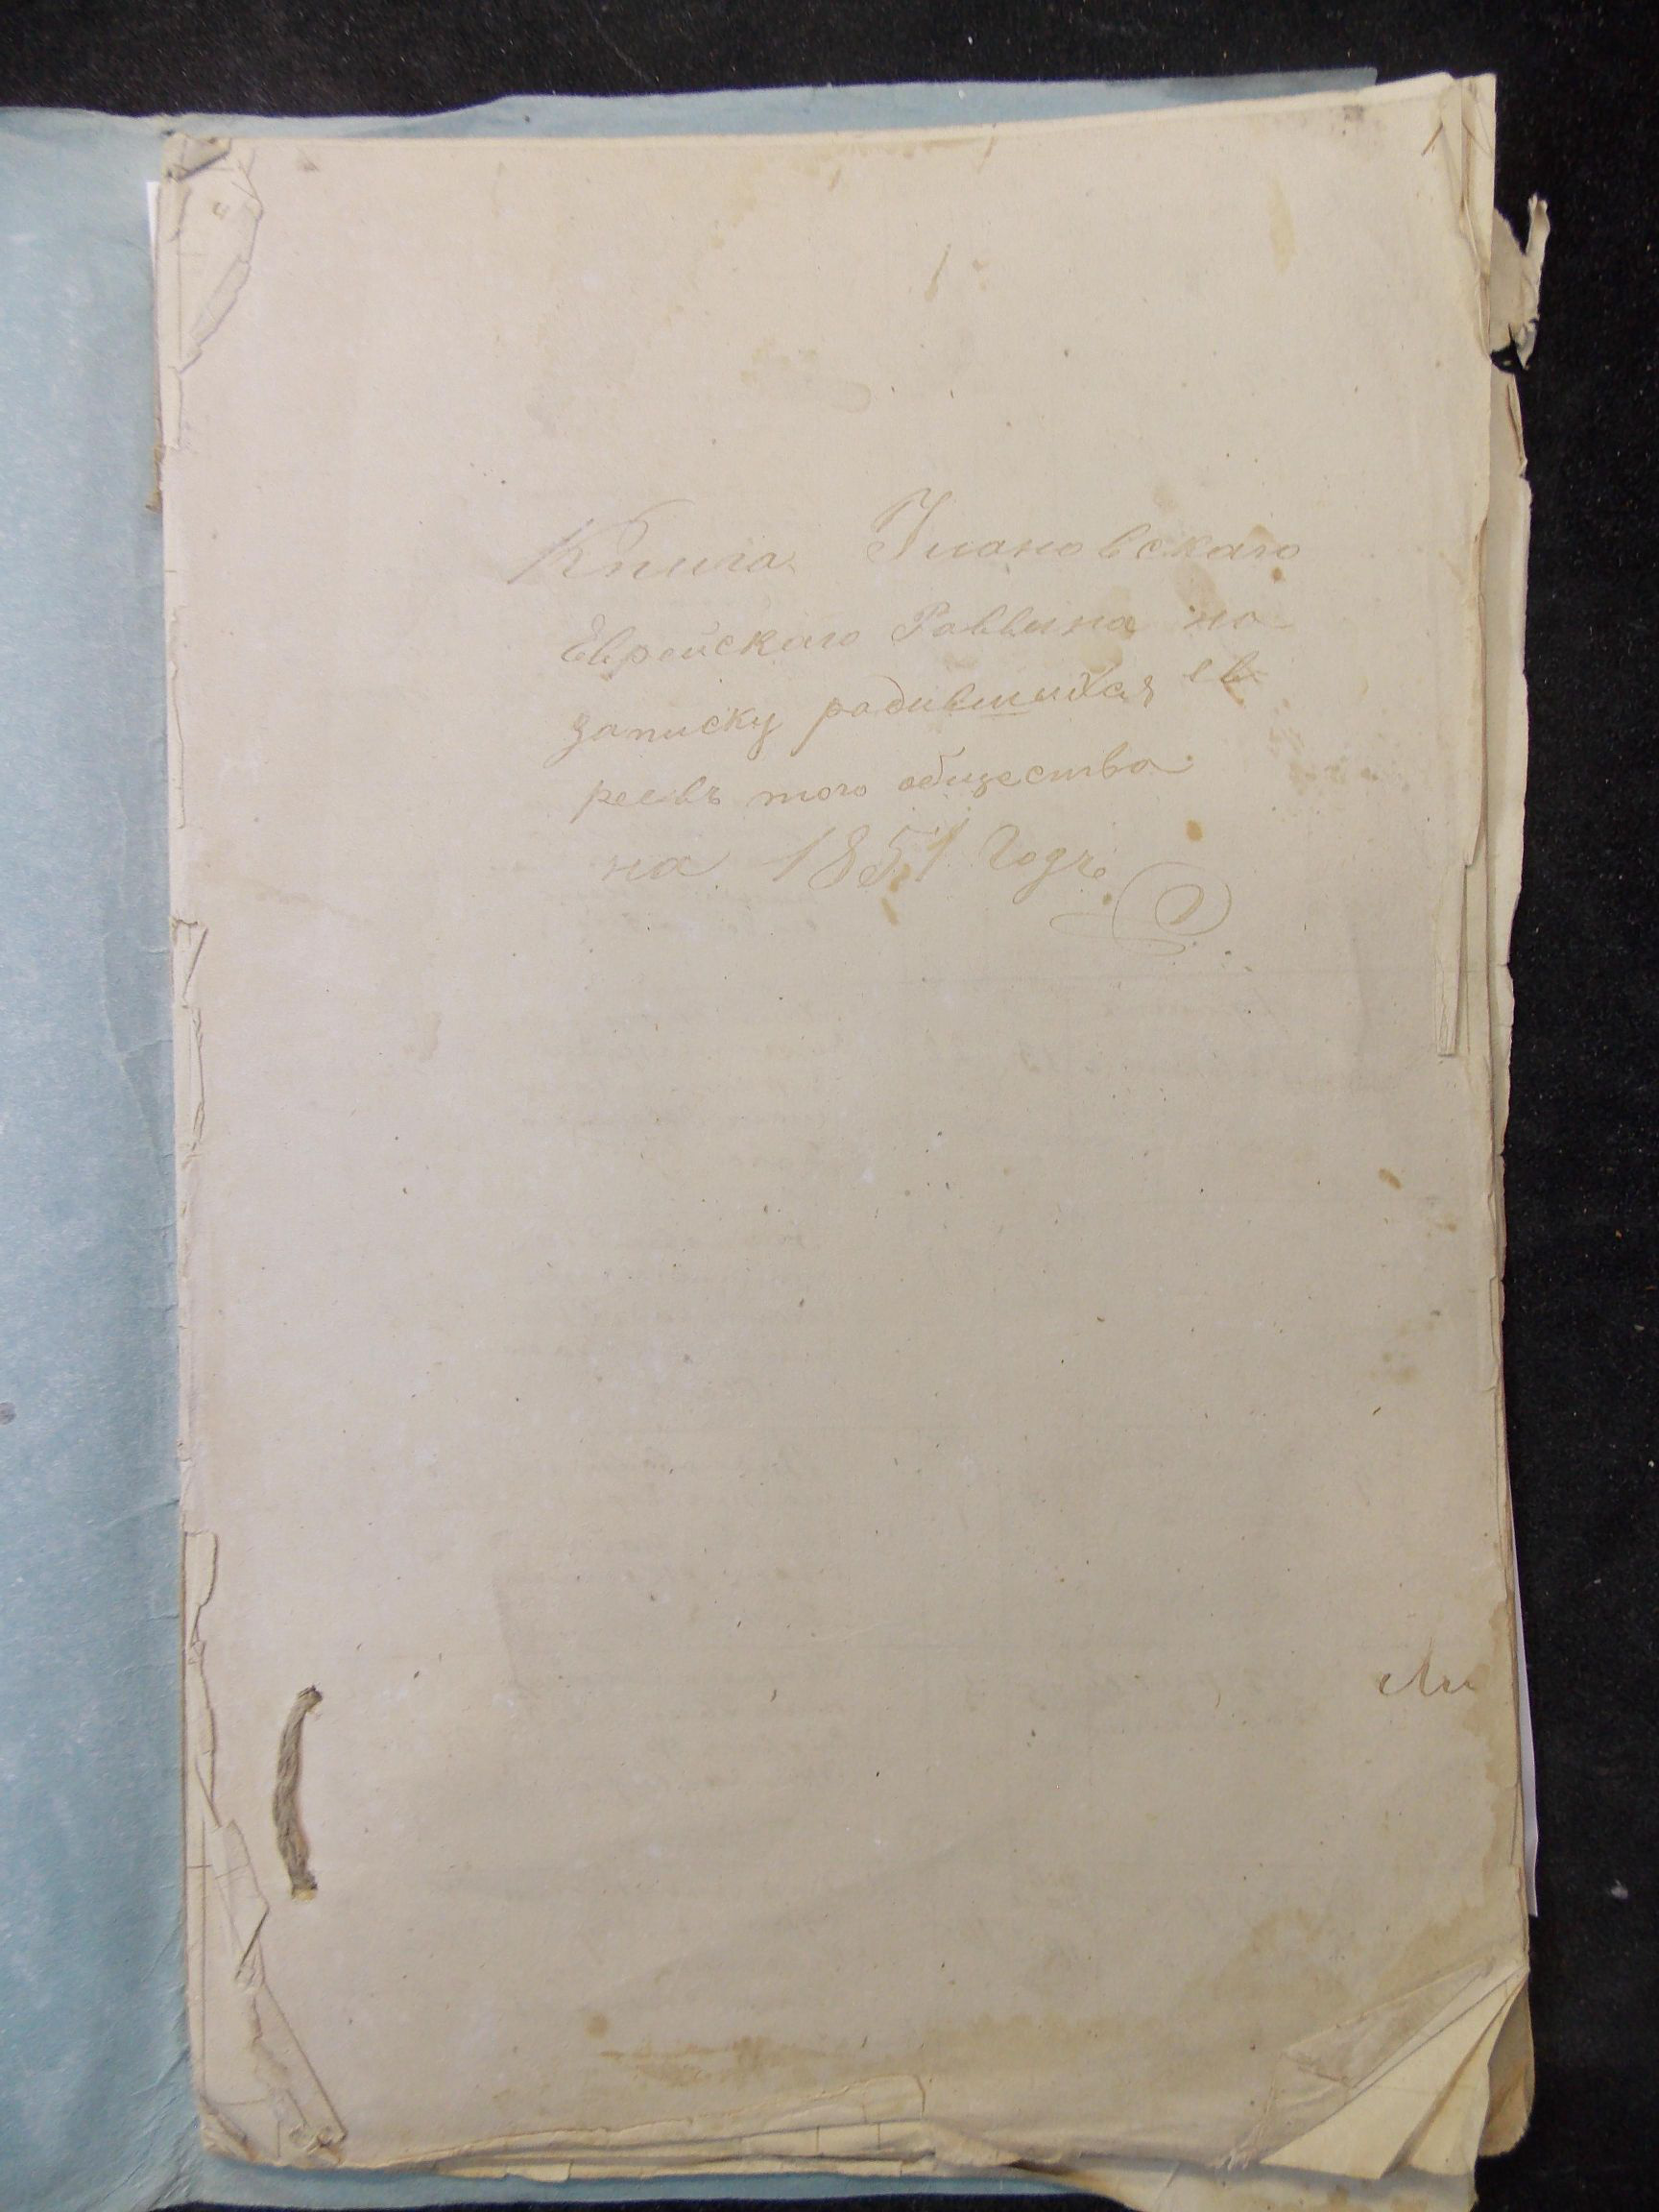 Книга Улановскаго
Еврейскаго Раввина на-
записку радившихся ев-
реевъ того общества
на 1851 Годъ